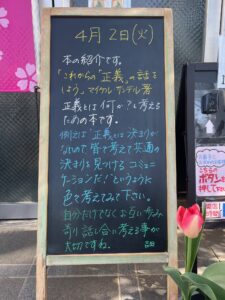 4月2日(火)
本の紹介です。
「これからの「正義」の話を
しよう」マイケル サンデル著
正義とは何か?を考える
ための本です。
例えば「正義とは決まりが
ないので皆で考えて共通の
決まりを見つけるコミュニ
ケーションだ!」というように
色々考えてみて下さい。
自分だけでなくお互い歩み
寄り話し合い考える事が
大切ですね。
こちらの
ボタンを
押して